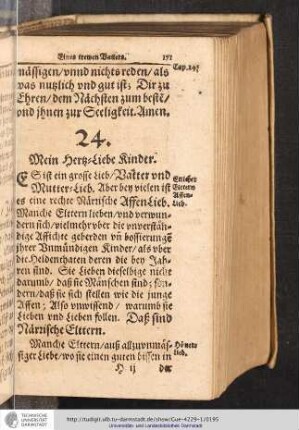 Eines trewen Vatters. 151
Cap. 24.
mässigen/ vnnd nichts reden/ als
was nutzlich vnd gut ist; Dir zu
Ehren/ dem Nächsten zum beste/
vnd jhnen zur Seeligkeit. Amen.
24.
Mein Hertz-Liebe Kinder.
ES ist ein grosse Lieb/ Vatter vnd
Mutter-Lieb. Aber bey vielen ist
es eine rechte Närische Affen Lieb.
Etlicher
Eltern
Affen-
Lieb.
Manche Eltern lieben/ vnd verwun-
dern sich/ vielmehr vber die vnverstän-
dige Affichte geberden vñ bossierungē
jhrer Vnmündigen Kinder/ als vber
die Heldenthaten deren die bey Jah-
ren sind. Sie Lieben dieselbige nicht
darumb/ daß sie Mänschen sind; son-
dern/ daß sie sich stellen wie die junge
Affen; Also vnwissend/ warumb sie
Lieben vnd Lieben sollen. Daß sind
Närrische Eltern.
Manche Eltern/ auß allzuunmäs-
siger Liebe/ wo sie einen guten bissen in
lieb.
H ij
TECHNISCHE
UNIVERSITÄT
DARMSTADT
http://tudigit.ulb.tu-darmstadt.de/show/Gue-4229-1/0195
Universitäts- und Landesbibliothek Darmstadt